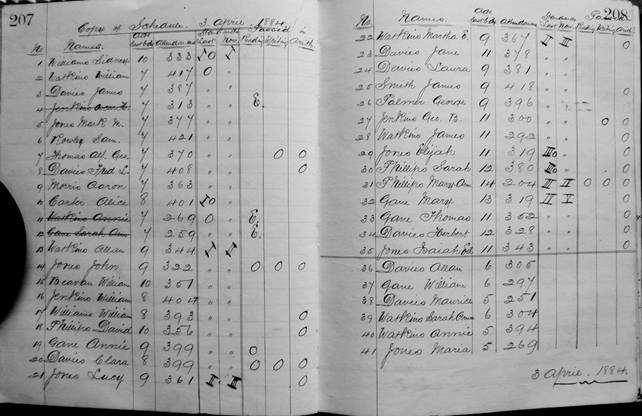 207
Copy of Schedule 3 April 1884
No Names. Age last b.dy Attendances Standards Last Now Passed in Reading Writing Arith
1 Williams Sidney 10 333 I0 I
2 Watkins William 7 417 0 "
3 Davies James 7 387 " "
4 7 313 " " E.
5 Jones Mark M. 7 377 " "
6 Rowley Sam. 7 421 " "
7 Thomas Alf. Geo. 7 370 " " 0 0
8 Davies Fred L. 7 408 " " 0
9 Morris Aaron 7 363 " "
10 Carter Alice 8 401 I0 "
11 Watkins Annie 7 269 0 " E.
12 Gane Sarah Ann 7 259 " " E.
13 Watkins Allan 9 344 I I
14 Jones John 9 322 " " 0 0 0
15 Beavan William 10 351 " "
16 Jenkins William 8 404 " "
17 Williams William 8 393 " " 0
18 Phillips David 10 356 " " 0
19 Gane Annie 9 399 " " 0
20 Davies Clara 8 399 " " 0 0 0
21 Jones Lucy 9 361 II III 0
208
No Names. Age last b.dy Attendances Standards Last Now Passed in Reading Writing Arith
22 Watkins Martha E. 9 367 II III
23 Davies Jane 11 378 " " 0
24 Davies Laura 9 381 " "
25 Smith James 9 418 " " 0
26 Palmer George 9 396 " "
27 Jenkins Geo. B. 11 300 " " 0 0
28 Watkins James 11 292 " " 0
29 Jones Elijah 11 319 III0 " 0
30 Phillips Sarah 12 380 III0 " 0
31 Phillips Mary Ann 14 204 0 0 0
32 Gane Mary 13 319 0
33 Gane Thomas 11 352 " " 0
34 Davies Herbert 12 328 " " 0
35 Jones Isaiah 11 343 " " 0
36 Davies Allan 6 305
37 Gane William 6 297
38 Davies Maurice 5 251
39 Watkins Sarah Ann 6 304
40 Watkins Annie 5 394
41 Jones Maria 5 269
3 April. 1884.